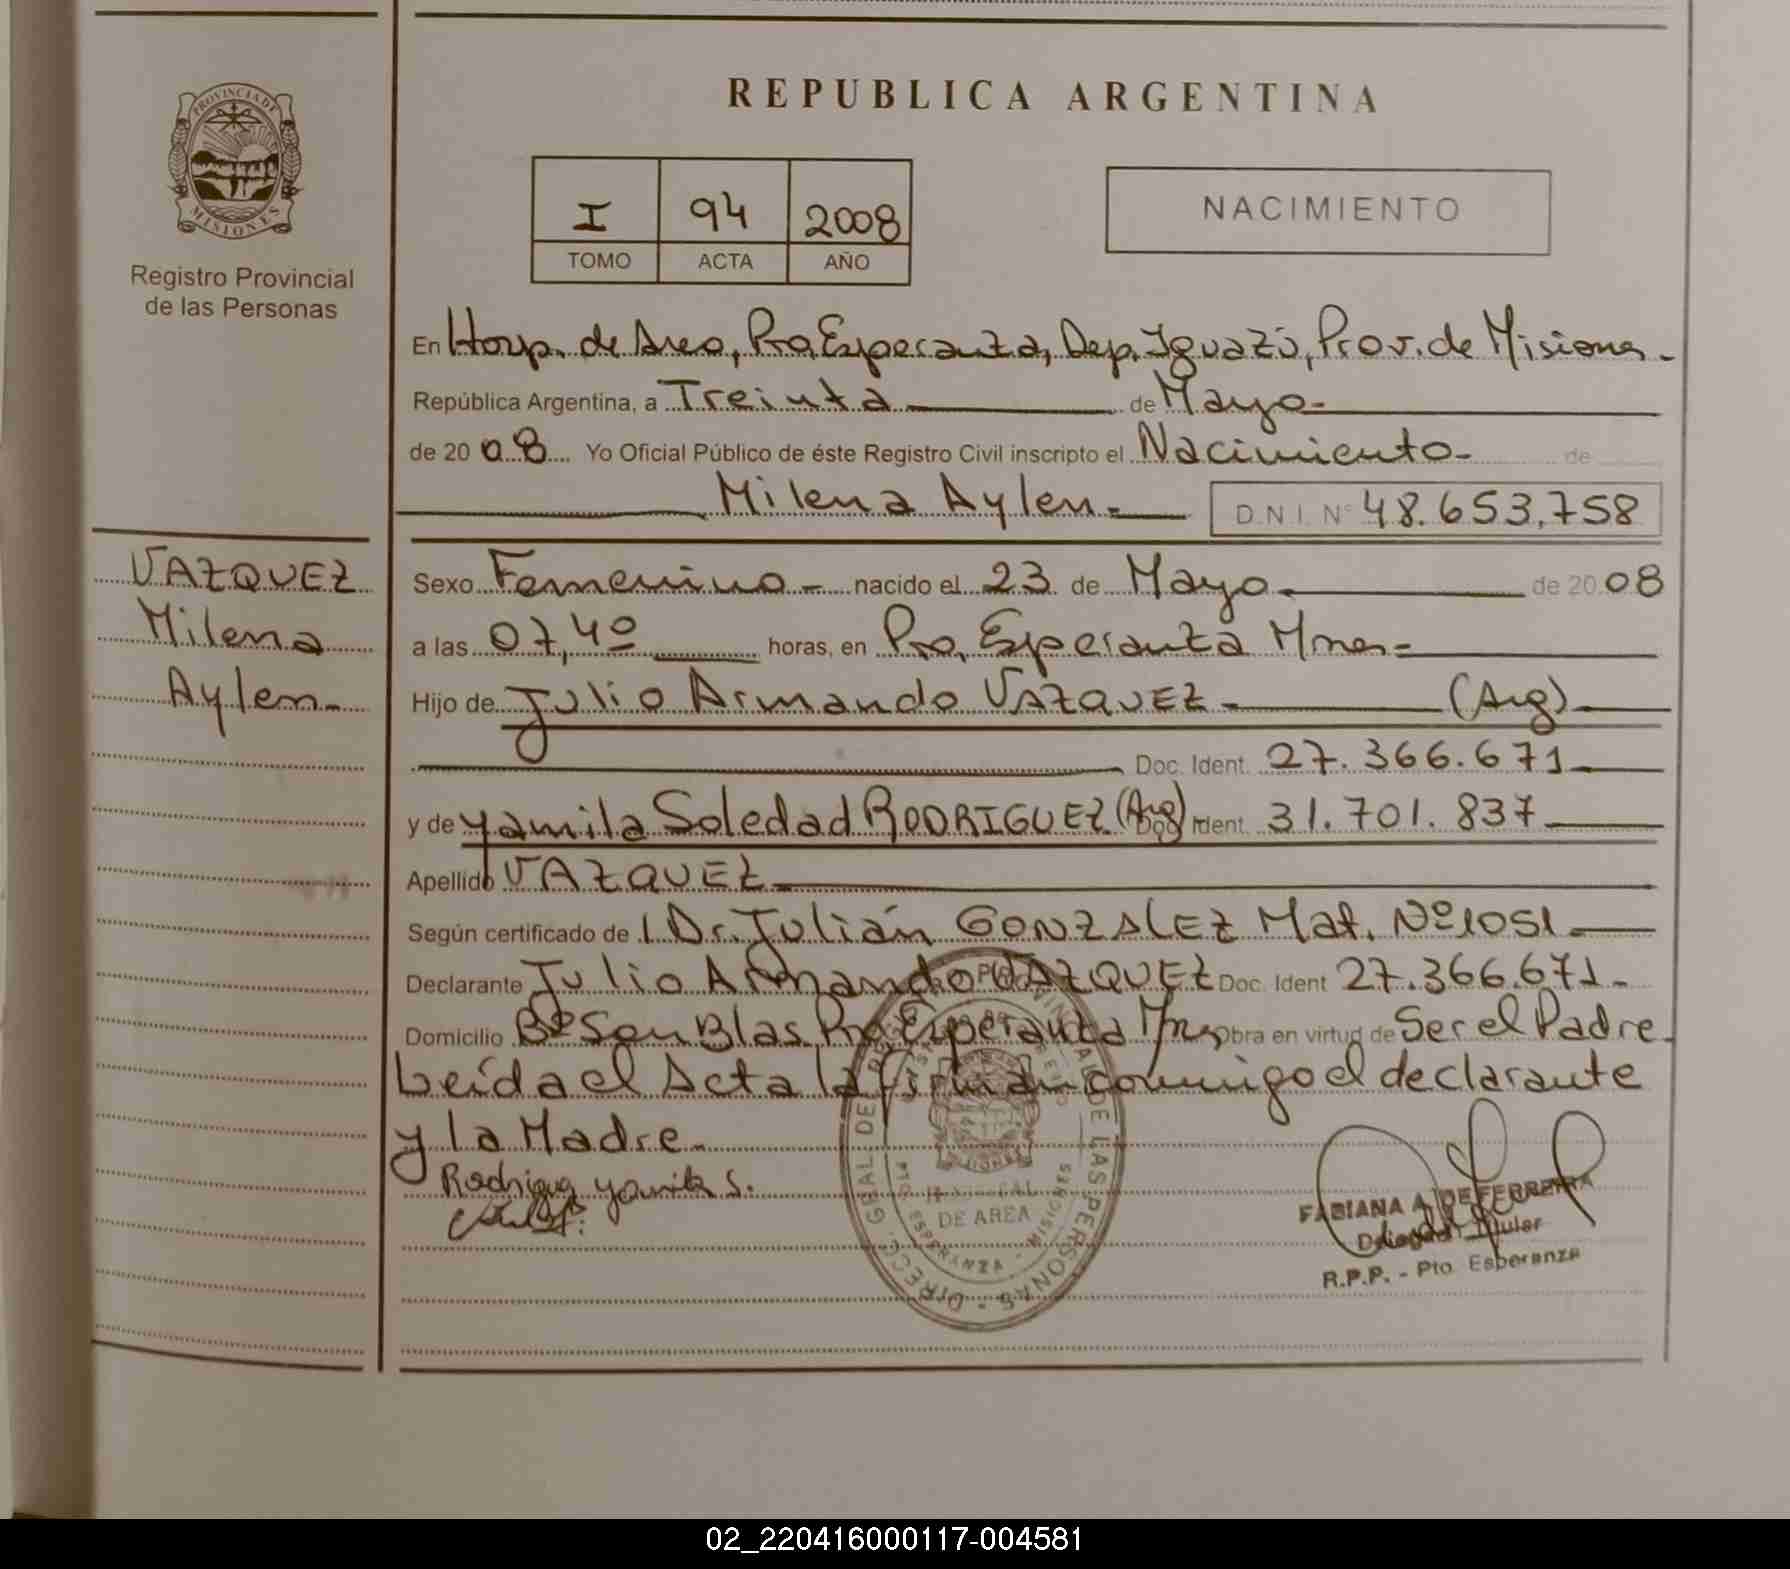 REPUBLICA ARGENTINA
PROVINCIA DE MISIONES
Registro Provincial
de las Personas
I 94 2008
TOMO ACTA AÑO
NACIMIENTO
En Hosp. de Area, Pto, Esperanza, Dep. Iguazú, Prov. de Misiones.-
República Argentina, a Treinta de Mayo-
de 20 08 Yo Oficial Público de éste Registro Civil inscripto el Nacimiento- de
Milena Aylen- D.N.I. Nº 48.653.758
VAZQUEZ
Milena
Aylen-
Sexo Femenino- nacido el 23 de Mayo de 20 08
a las 07,4º horas, en Pto, Esperanza Mnes-
Hijo de Julio Armando VAZQUEZ- (Arg)
Doc. Ident. 27.366.671
y de Yamila Soledad RODRIGUEZ (Arg) Doc Ident. 31.701.837
Apellido VAZQUEZ-
Según certificado de 1 Dr. Julián GONZALEZ Mat. Nº 1051-
Declarante Julio Armando VAZQUEZ Doc. Ident 27.366.671-
Domicilio Bº San Blas Pto Esperanza Mnes Obra en virtud de Ser el Padre
Leída el Acta la firman conmigo el declarante
y la Madre-
Rodriguez Yamila S.
DIRECC. GRAL DE REG. PROVINCIAL DE LAS PERSONAS
HOSPITAL
DE AREA
PTO ESPERANZA - MISIONES
FABIANA A. DE FERREIRA
Delegada Titular
R.P.P. - Pto. Esperanza
02_220416000117-004581